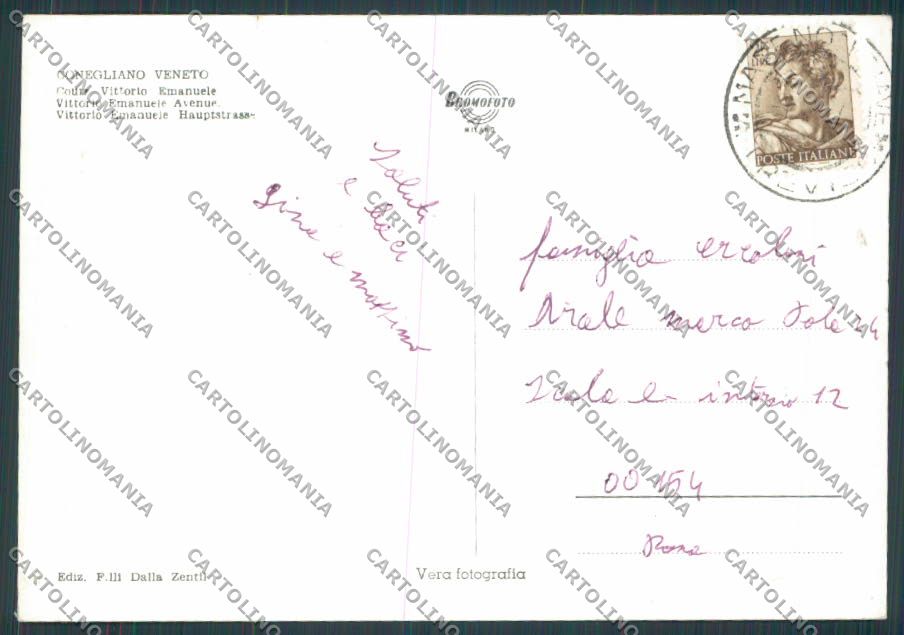 CONEGLIANO VENETO
Corso Vittorio Emanuele
Vittorio Emanuele Avenue.
Vittorio Emanuele Hauptstrasse
BROMOFOTO
MILANO
POSTE ITALIANE
Saluti
e baci
Gina e Massimo
famiglia ercolani
Viale marco Polo
Scala e interno 12
00154
Roma
Ediz. F.lli Dalla Zentil
Vera fotografia
CARTOLINOMANIA